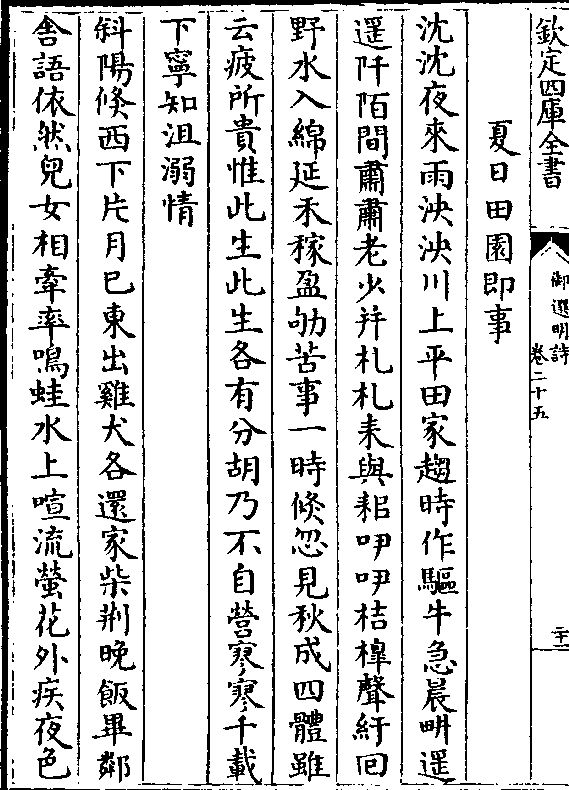 欽定四庫全書
御選明詩
卷二十五
二十一
夏日田園即事
沈沈夜來雨泱泱川上平田家趨時作驅牛急晨畊遥
遥阡陌間肅肅老少并札札耒與耜咿咿桔橰聲紆回
野水入綿延禾稼盈劬苦事一時倐忽見秋成四體雖
云疲所貴惟此生此生各有分胡乃不自營寥寥千載
下寧知沮溺情
斜陽倐西下片月已東出雞犬各還家柴荆晚飯畢鄰
舍語依然兒女相牽率鳴蛙水上喧流螢花外疾夜色